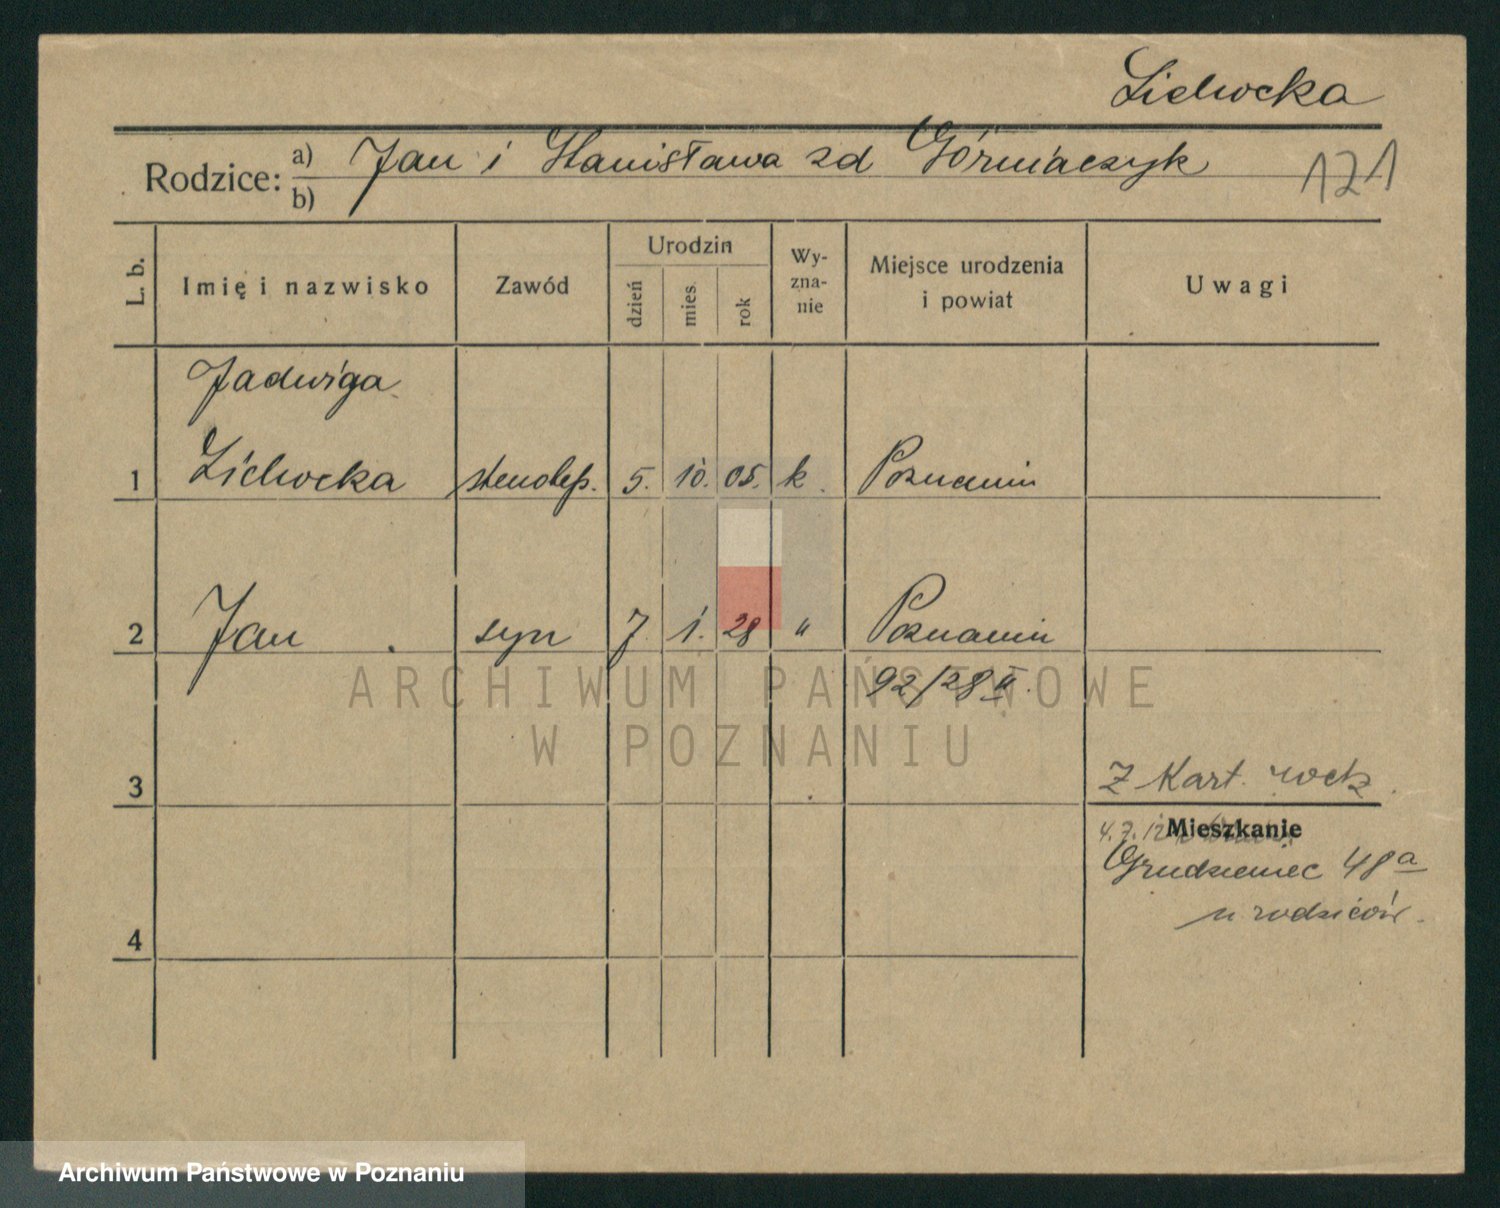 Lichocka
Rodzice: a) Jan i Stanisława zd Górniaczyk
b)
121
L. b.
Imię i nazwisko
Zawód
Urodzin
dzień
mies.
rok
Wy-
zna-
nie
Miejsce urodzenia
i powiat
Uwagi
Jadwiga
1 Lichocka stenotyp. 5. 10. 05. k. Poznaniu
2 Jan syn 7. 1. 28 " Poznaniu
92/28 II.
ARCHIWUM PAŃSTWOWE
W POZNANIU
3
Z Kart.
Mieszkanie
4.7.12
Grudzieniec 48a
u rodziców.
4
Archiwum Państwowe w Poznaniu